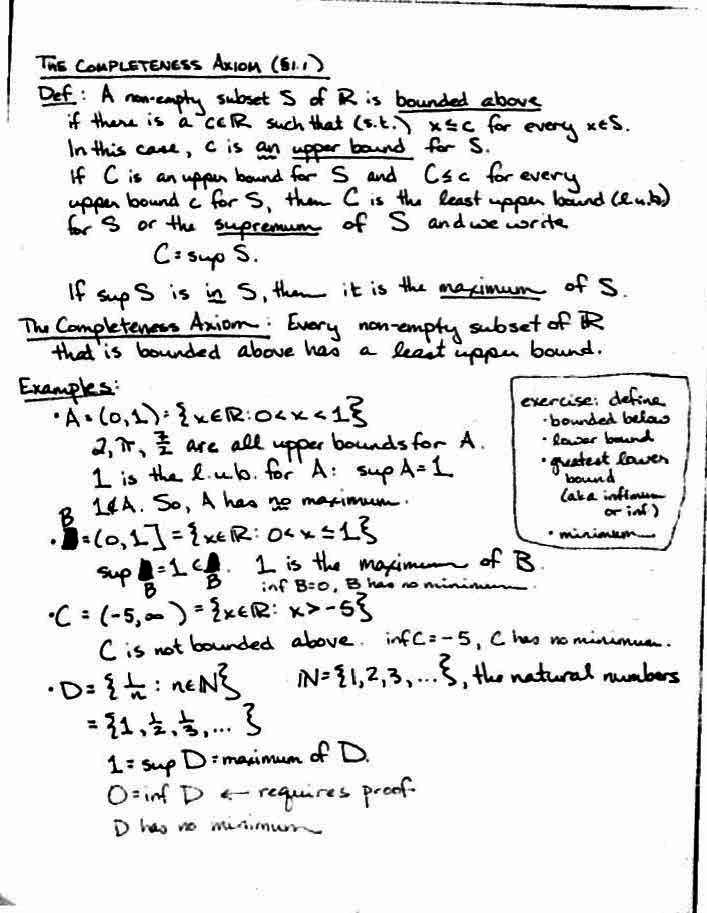 THE COMPLETENESS AXIOM (§1.1)
Def: A non-empty subset S of ℝ is bounded above
if there is a c∈ℝ such that (s.t.) x≤c for every x∈S.
In this case, c is an upper bound for S.
If C is an upper bound for S and C≤c for every
upper bound c for S, then C is the least upper bound (l.u.b.)
for S or the supremum of S and we write
C = sup S.
If sup S is in S, then it is the maximum of S.
The Completeness Axiom: Every non-empty subset of ℝ
that is bounded above has a least upper bound.
Examples:
• A = (0,1) = {x∈ℝ: 0<x<1}
2, π, 7/2 are all upper bounds for A.
1 is the l.u.b. for A: sup A = 1
1∉A. So, A has no maximum.
exercise: define
• bounded below
• lower bound
• greatest lower
bound
(aka infimum
or inf)
• minimum
• B = (0,1] = {x∈ℝ: 0<x≤1}
sup B = 1 ∈ B. 1 is the maximum of B.
inf B=0, B has no minimum.
• C = (-5,∞) = {x∈ℝ: x>-5}
C is not bounded above. inf C = -5, C has no minimum.
• D = {1/n : n∈ℕ} ℕ={1,2,3,...}, the natural numbers
= {1, 1/2, 1/3, ... }
1 = sup D = maximum of D.
0 = inf D ← requires proof.
D has no minimum